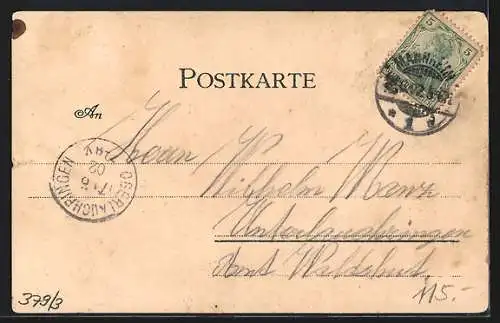 5 5
MANNHEIM
POSTKARTE
An
Herrn
Wilhelm Menz
Unterlauchringen
Amt Waldshut
OBERLAUCHRINGEN
17 5
02
* 1 *
379/3
115.-